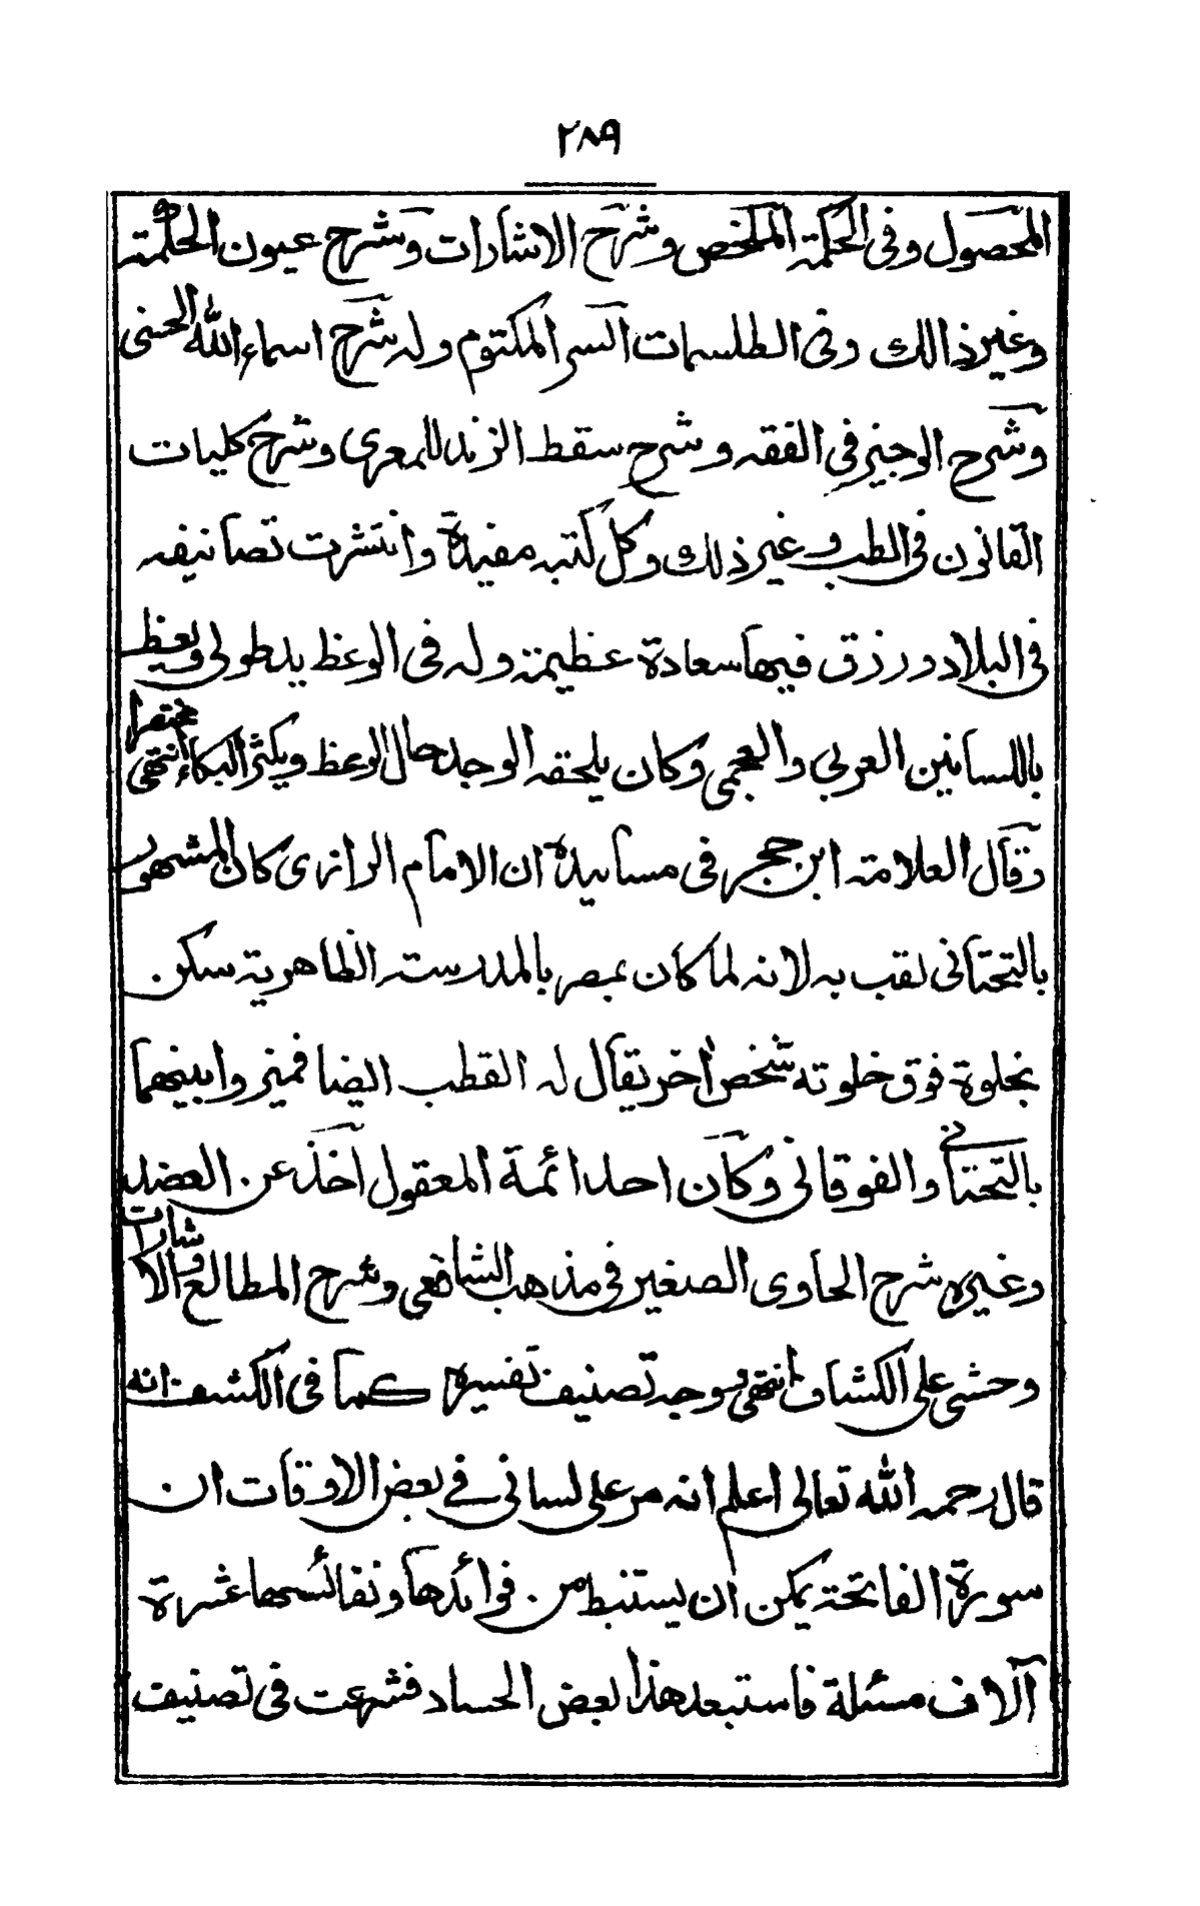 ٢٨٩
المحصول وفى الحكمة الملخص وشرح الاشارات وشرح عيون الحكمة
وغير ذالك وفى الطلسمات السر المكتوم وله شرح اسماء الله الحسنى
وشرح الوجيز فى الفقه وشرح سقط الزند للمعرى وشرح كليات
القانون فى الطب وغير ذلك وكل كتبه مفيدة وانتشرت تصانيفه
فى البلاد ورزق فيها سعادة عظيمة وله فى الوعظ يد طولى ويعظ
باللسانين العربي والعجمي وكان يلحقه الوجد حال الوعظ ويكثر البكاء انتهى مختصرا
وقال العلامة ابن حجر فى مسانيده ان الامام الرازى كان المشهور
بالتحتانى لقب به لانه لما كان بمصر بالمدرسة الظاهرية سكن
بخلوة فوق خلوته شخص اخر يقال له القطب ايضا فميزوا بينهما
بالتحتاني والفوقانى وكان احد ائمة المعقول اخذ عن العضد
وغيره شرح الحاوى الصغير فى مذهب الشافعي وشرح المطالع والاشارات
وحشى على الكشاف انتهى ووجه تصنيف تفسيره كما فى الكشف انه
قال رحمه الله تعالى اعلم انه مر على لسانى في بعض الاوقات ان
سورة الفاتحة يمكن ان يستنبط من فوائدها ونفائسها عشرة
آلاف مسئلة فاستبعد هذا بعض الحساد فشرعت فى تصنيف